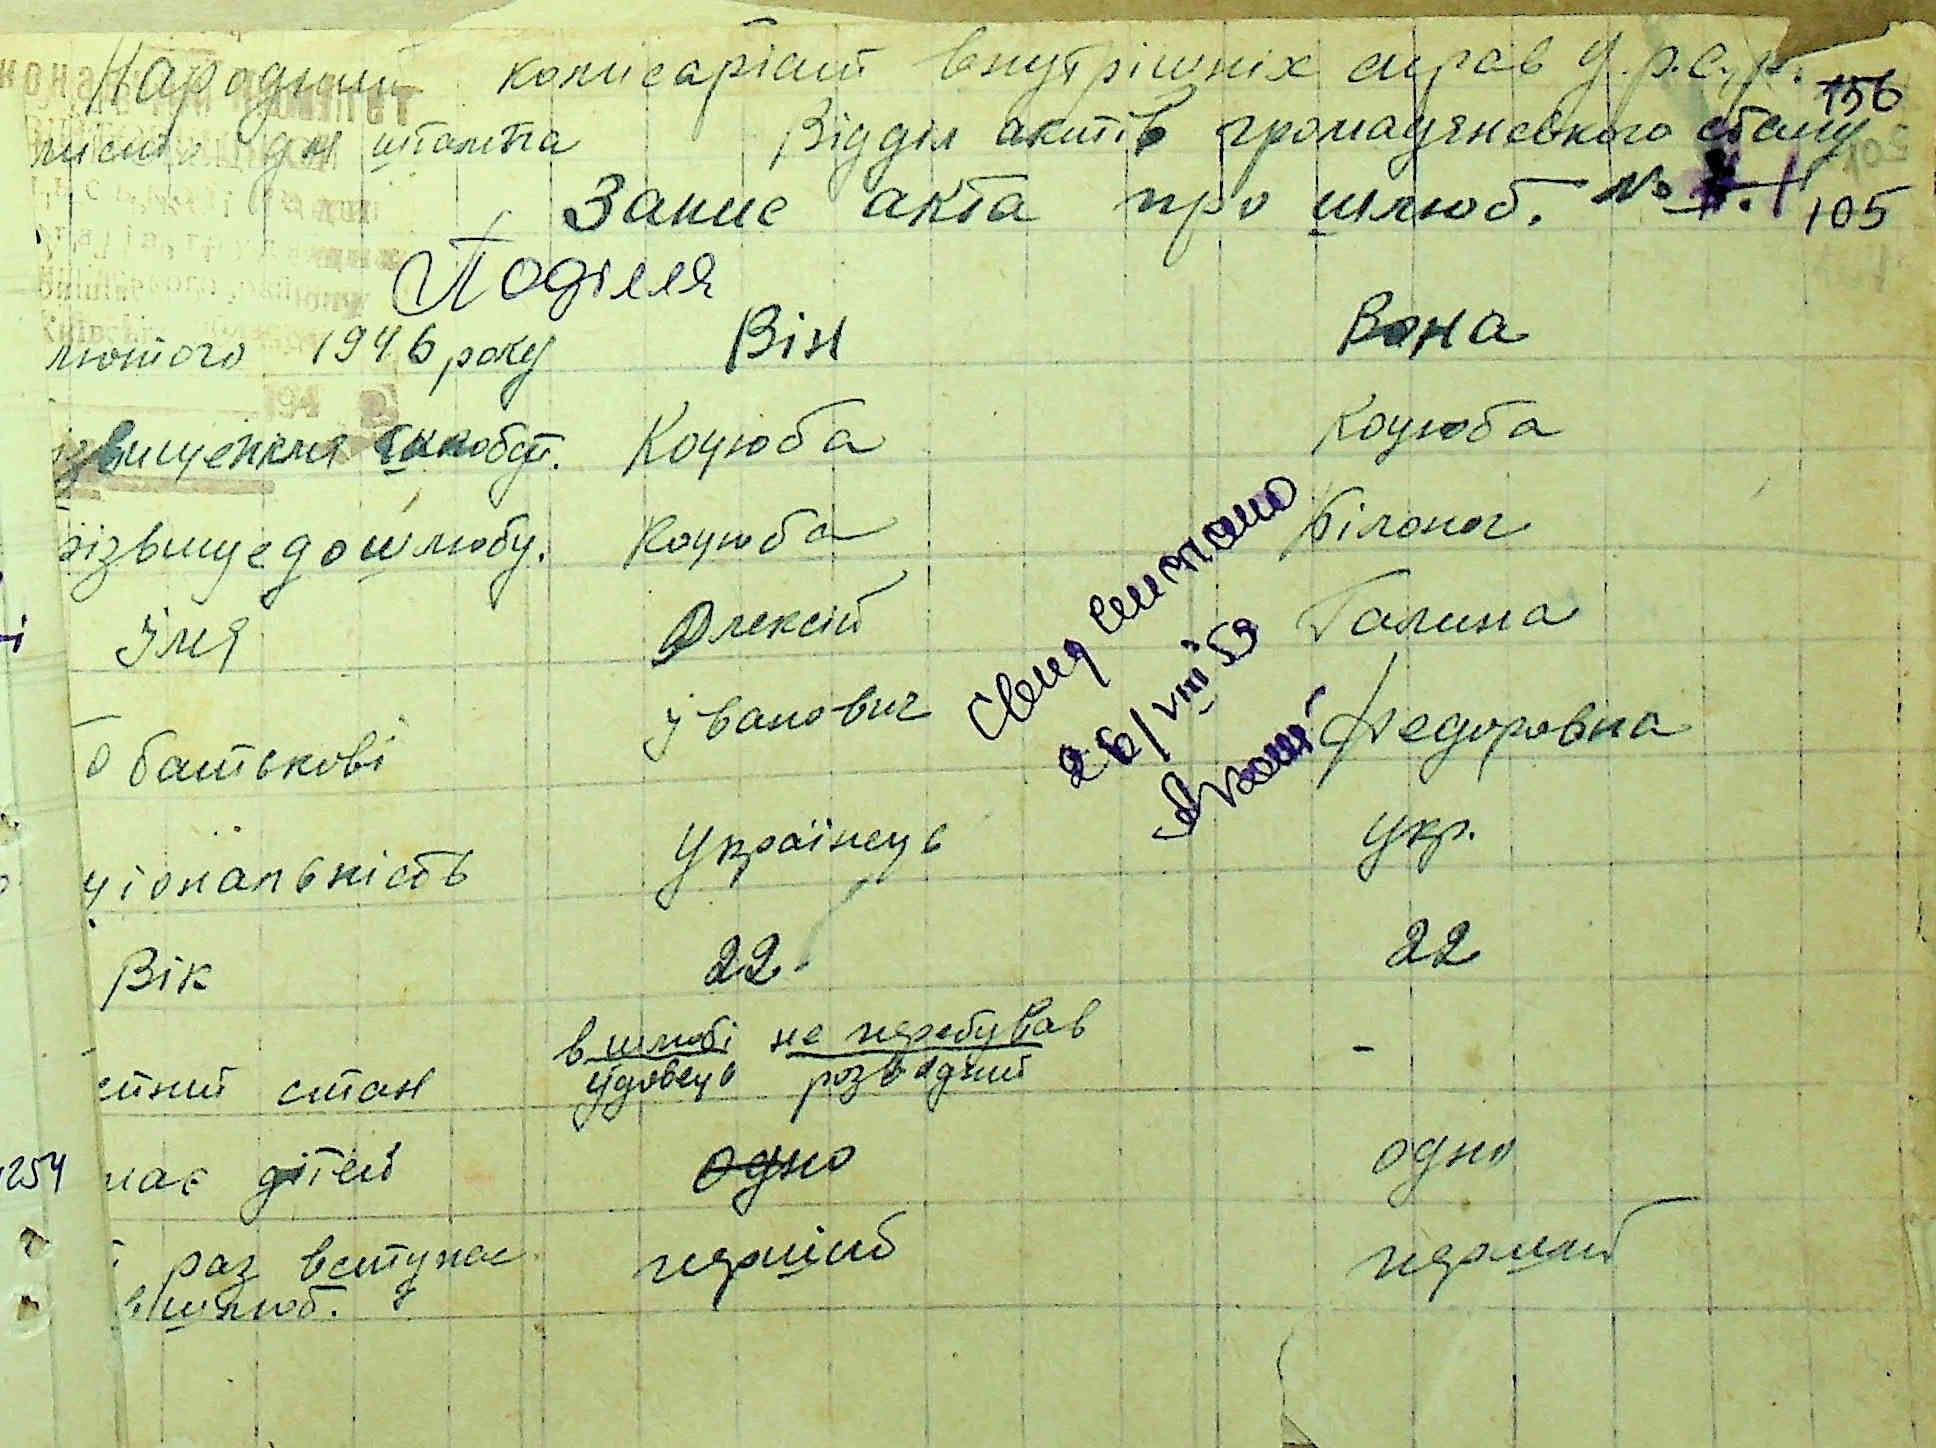 Народний комісаріат внутрішніх справ У.Р.С.Р. 156
місце для штампа Відділ актів громадянського стану
Запис акта про шлюб. № 1 105
Поділля
лютого 1946 року Він Вона
ізвище після шлюбу. Коцюба Коцюба
різвище до шлюбу. Коцюба Білоног
Імя Олексій Галина
о батькові Іванович Федоровна
ціональність Українець укр.
Вік 22 22
в шлюбі не перебував -
ейний стан удовець розводний
має дітей одно одно
раз вступає перший перший
в шлюб.
26/VIII 59
254